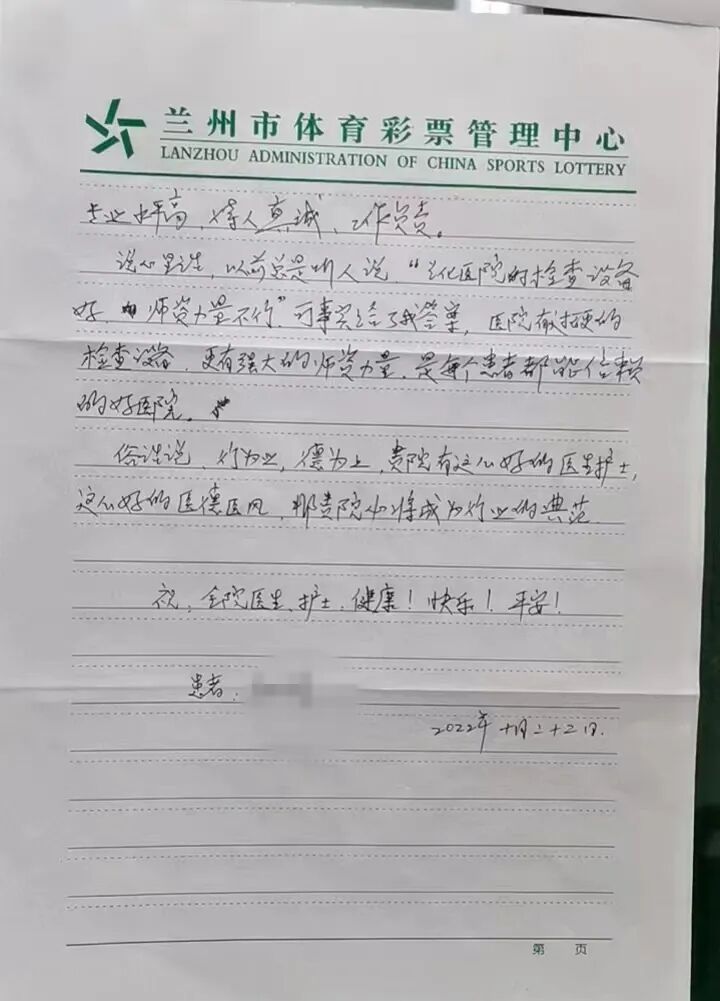 兰州市体育彩票管理中心
LANZHOU ADMINISTRATION OF CHINA SPORTS LOTTERY
专业水平高，待人真诚，工作负责。
说心里话，以前总是听人说，“兰化医院的检查设备
好，师资力量不行”可事实给了我答案，医院有过硬的
检查设备，更有强大的师资力量，是每个患者都能信赖
的好医院。
俗话说，行为业，德为上，贵院有这么好的医生护士，
这么好的医德医风，那贵院必将成为行业的典范
祝，全院医生、护士，健康！快乐！平安！
患者：
2022年十月二十三日.
第 页